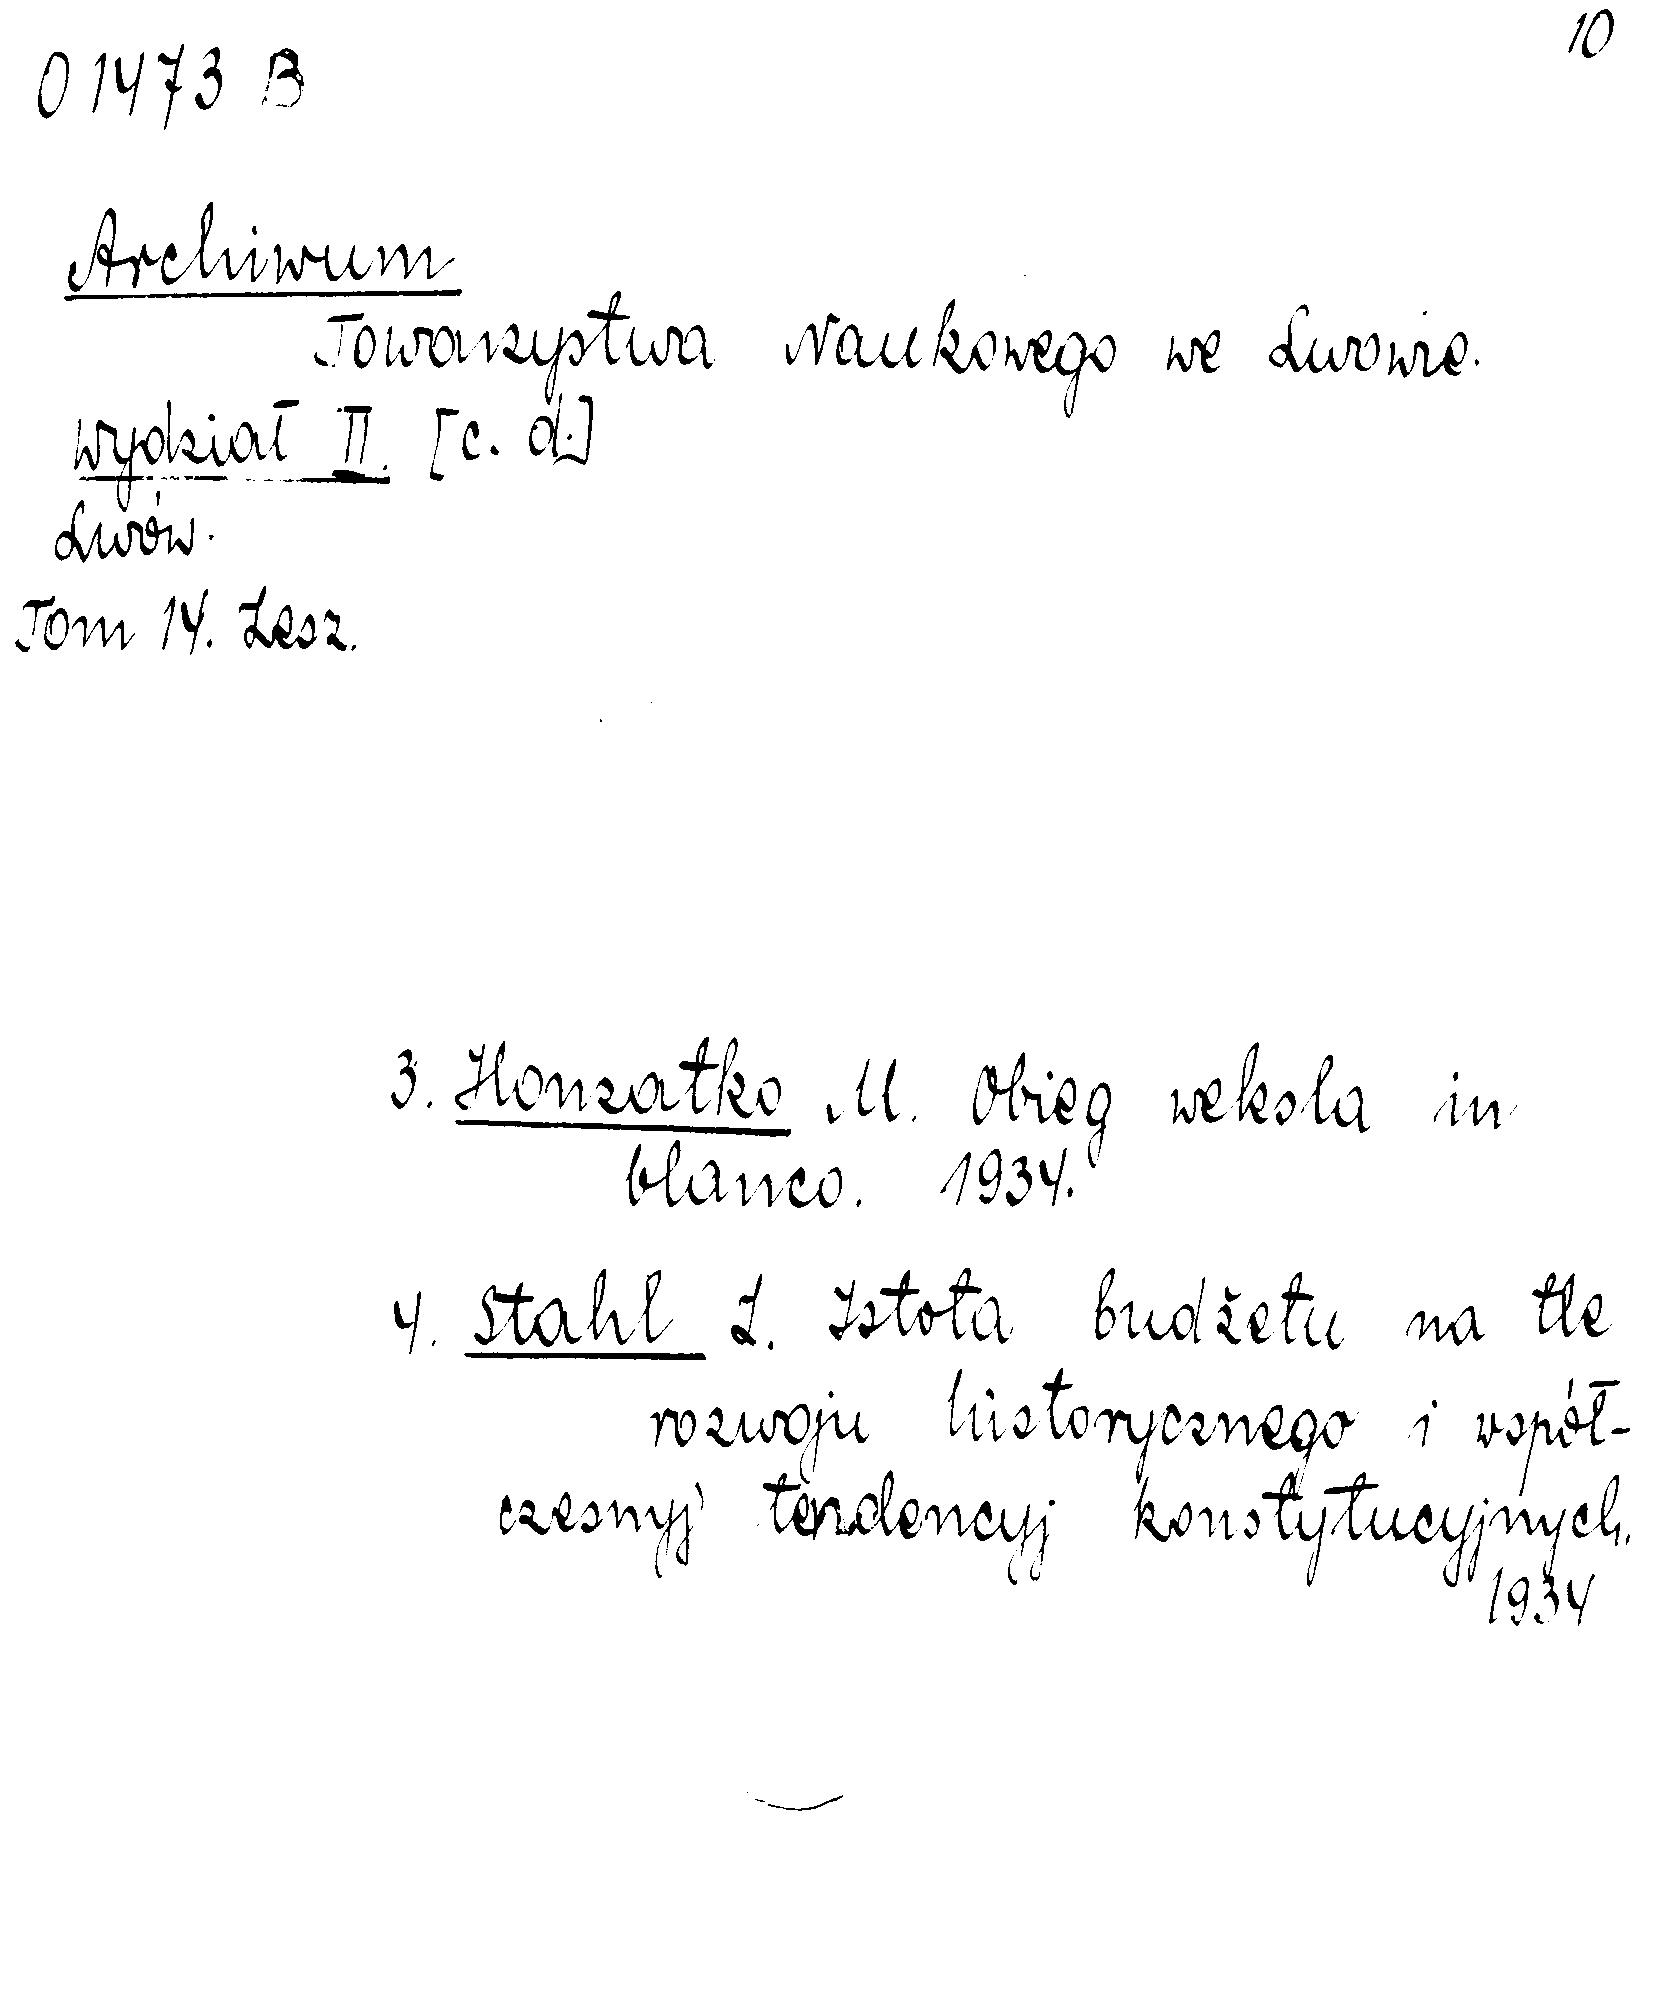 10
O 1473 B
Archiwum
Towarzystwa Naukowego we Lwowie.
Wydział II. [c. d.]
Lwów.
Tom 14. Zesz.
3. Honzatko M. Obieg weksla in
blanco. 1934.
4. Stahl Z. Istota budżetu na tle
rozwoju historycznego i współ-
czesnyj tendencyj konstytucyjnych.
1934